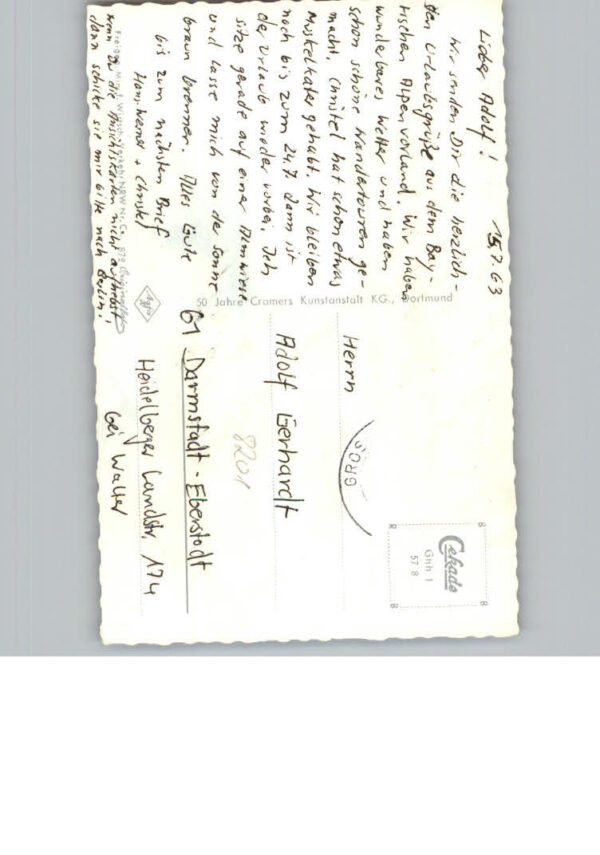 15.7.63
Lieber Adolf!
Wir senden Dir die herzlich-
sten Urlaubsgrüße aus dem Bay-
rischen Alpenvorland. Wir haben
wunderbares Wetter und haben
schon schöne Wandertouren ge-
macht. Christel hat schon etwas
Muskelkater gehabt. Wir bleiben
noch bis zum 24.7. dann ist
der Urlaub wieder vorbei. Ich
sitze gerade auf einer Almwiese
und lasse mich von der Sonne
braun brennen. Alles Gute
bis zum nächsten Brief
Hans-Werner + Christel
wenn Du die Ansichtskarten nicht aufhebst,
dann schicke sie mir bitte nach Berlin!
Agfa
50 Jahre Cramers Kunstanstalt KG., Dortmund
Cekade
Ghh 1
57 8
GROS
Herrn
Adolf Gerhardt
8201
61 Darmstadt-Eberstadt
Heidelberger Landstr. 174
bei Walter